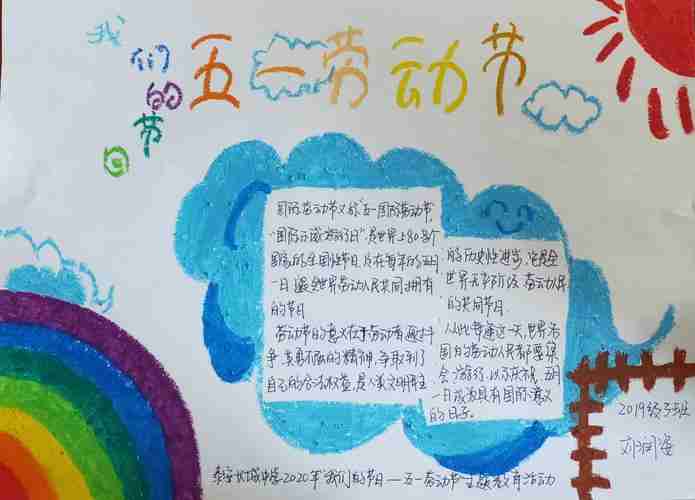 我们的节日
五一劳动节
国际劳动节又称"五一国际劳动节,
"国际示威游行日",是世界上80多个
国家的全国性节日,定在每年的五月
一日,是全世界劳动人民共同拥有
的节日
劳动节的意义在于劳动者通过斗
争,英勇不屈的精神,争取到了
自己的合法权益,是人类文明民主
的历史性进步,它是全
世界无产阶级、劳动人民
的共同节日.
从此每逢这一天,世界各
国的劳动人民都要集
会、游行,以示庆祝,五月
一日成为具有国际意义
的日子.
2019级3班
泰安长城中学2020年"我们的节日——五一劳动节"主题教育活动